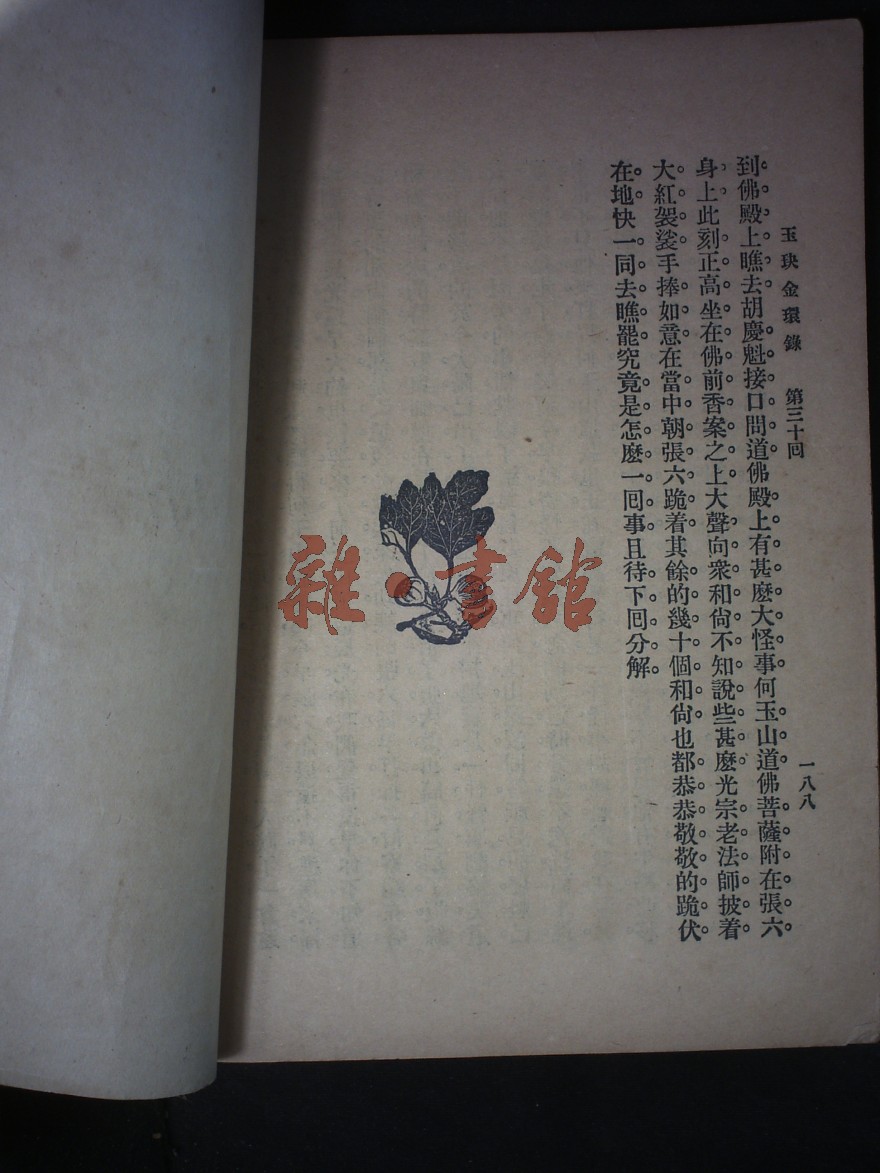 玉玦金環錄　第三十回　一八八
到佛殿上瞧去胡慶魁接口問道佛殿上有甚麽大怪事何玉山道佛菩薩附在張六
身上此刻正高坐在佛前香案之上大聲向衆和尙不知說些甚麽光宗老法師披着
大紅袈裟手捧如意在當中朝張六跪着其餘的幾十個和尙也都恭恭敬敬的跪伏
在地快一同去瞧罷究竟是怎麽一囘事且待下囘分解
雜·書舘